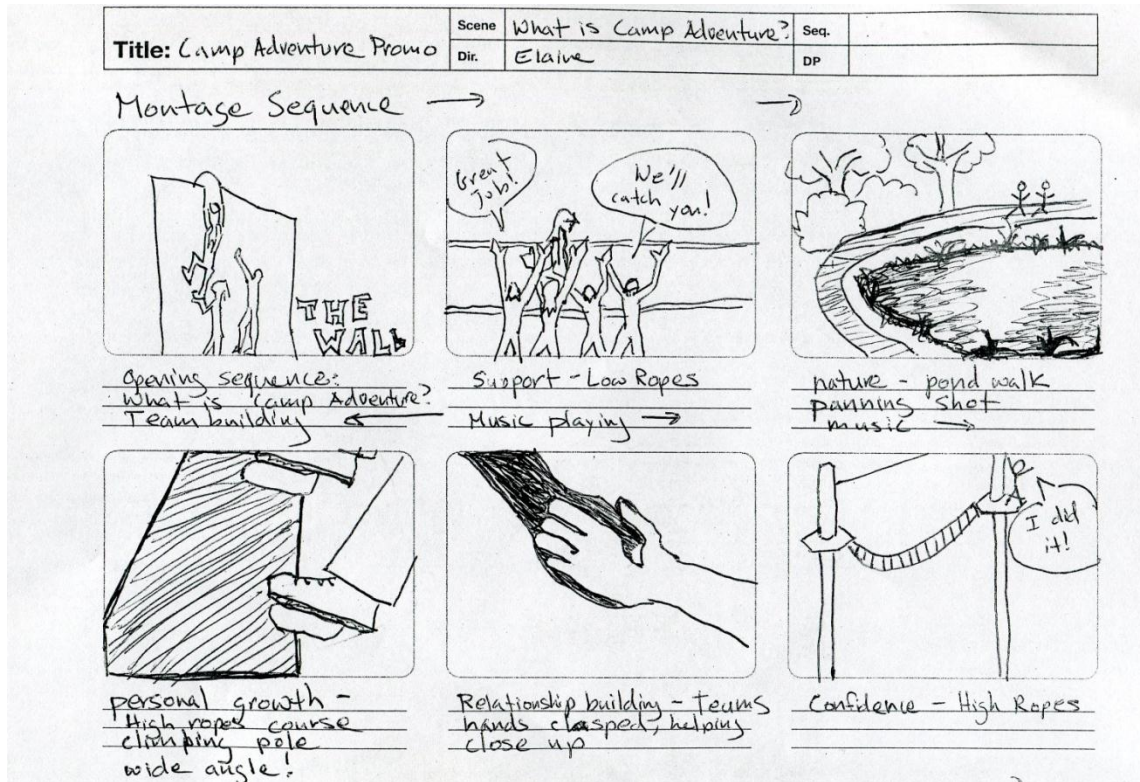 Title: Camp Adventure Promo
Scene What is Camp Adventure? Seq.
Dir. Elaine DP
Montage Sequence → →
THE
WALL
Great
Job!
We'll
catch you!
Opening sequence:
What is Camp Adventure?
Team building ←
Support - Low Ropes
Music playing →
nature - pond walk
panning shot
music →
I did
it!
personal growth -
High ropes course
climbing pole
wide angle!
Relationship building - teams
hands clasped, helping
close up
Confidence - High Ropes